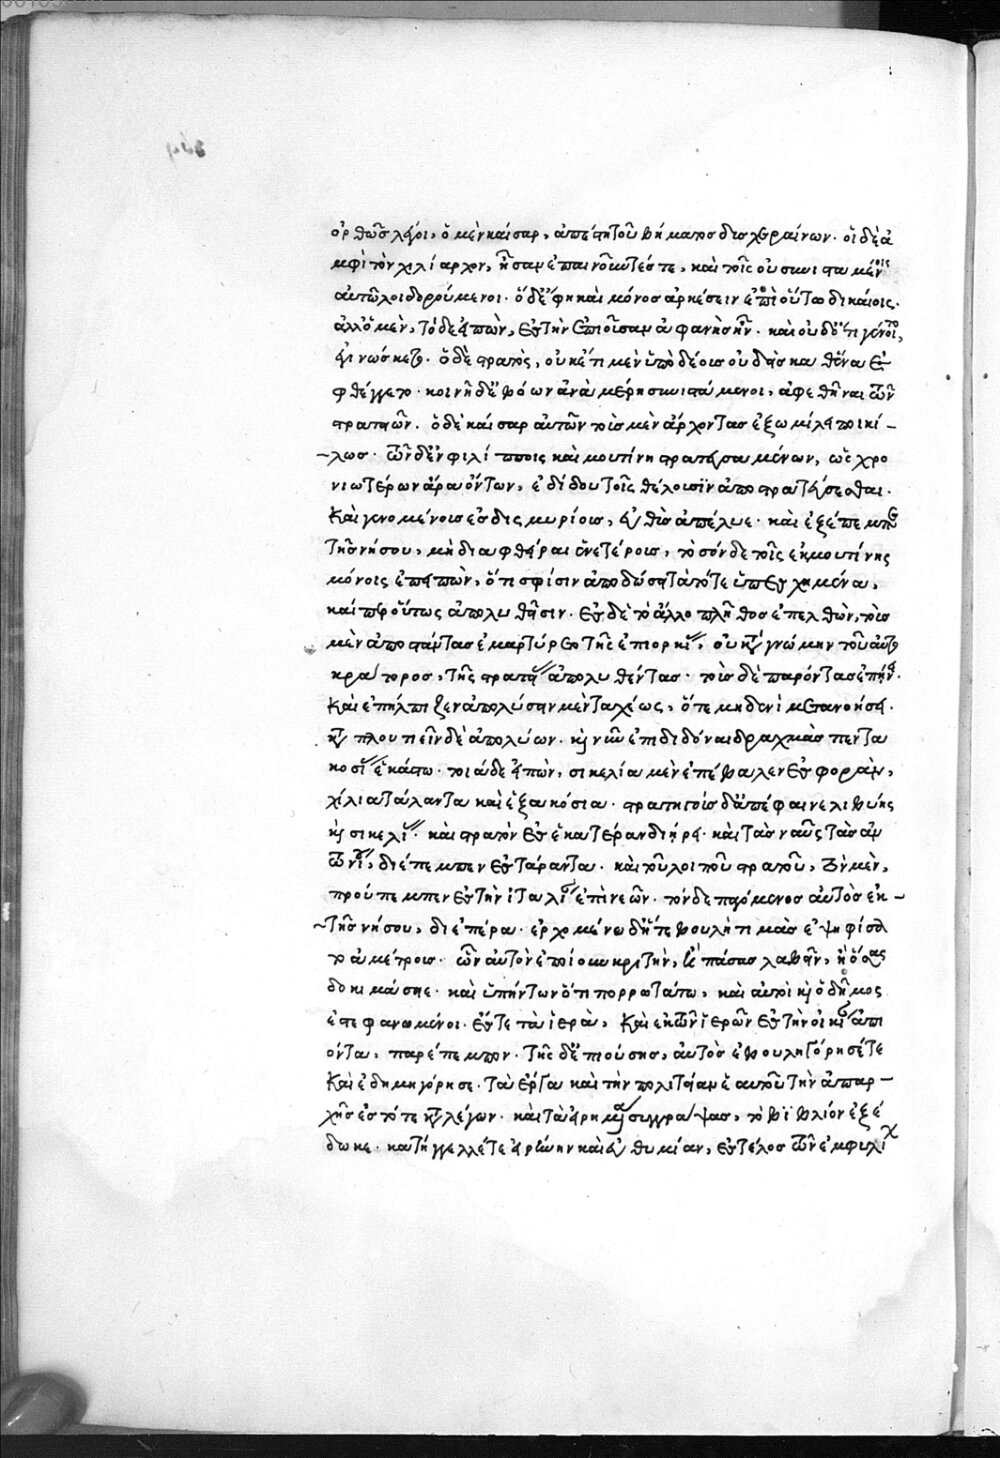 ὀρθῶς λέγοι, ὁ μὲν καίσαρ, ἀπῄει τοῦ βήματος δυσχεραίνων. οἱ δὲ ἀ
μφὶ τὸν χιλίαρχον, ἦσαν ἐπαινοῦντές τε, καὶ τοῖς οὐ συνισταμένοις
αὐτῷ λοιδορούμενοι. ὁ δ' ἔφη καὶ μόνος ἀρκέσειν ἐπὶ οὕτω δικαίοις.
ἀλλ' ὁ μὲν, τόδε εἰπὼν, ἐς τὴν ἐπιοῦσαν ἀφανὴς ἦν. καὶ οὐδ' ὅτι γένοιτο,
ἐγινώσκετο. ὁ δὲ στρατὸς, οὐκέτι μὲν ὑπὸ δέους οὐδεὶς καθ' ἕνα ἐ
φθέγγετο. κοινῇ δ' ἐβόων ἀνὰ μέρη συνιστάμενοι, ἀφεθῆναι τῶν
στρατειῶν. ὁ δὲ καίσαρ αὐτῶν τοὺς μὲν ἄρχοντας ἐξωμίλει ποικί-
-λως. τῶν δ' ἐν φιλίπποις καὶ μουτίνῃ στρατευσαμένων, ὡς χρο
νιωτέρων ἄρα ὄντων, ἐδίδου τοῖς θέλουσιν ἀποστρατεύεσθαι.
Καὶ γενομένοις ἐς δισμυρίοις, εὐθὺς ἀπέλυε. καὶ ἐξέπεμπε
τῆς νήσου, μὴ διαφθείραιεν ἑτέροις, τοσόνδε τοῖς ἐκ μουτίνης
μόνοις ἐπειπὼν, ὅτι σφίσιν ἀποδώσει τὰ τότε ὑπεσχημένα,
καίπερ οὕτως ἀπολυθεῖσιν. ἐς δὲ τὸ ἄλλο πλῆθος ἐπελθὼν, τοὺς
μὲν ἀποστάντας ἐμαρτύρετο τῆς ἐπιορκίας, οὐ κατὰ γνώμην τοῦ αὐτο
κράτορος, τῆς στρατείας ἀπολυθέντας. τοὺς δὲ παρόντας ἐπῄνει.
Καὶ ἐπήλπιζεν ἀπολύσειν μὲν ταχέως, ὅτε μηδενὶ μετανοήσει.
καταπλουτιεῖν δὲ ἀπολύων. καὶ νῦν ἐπιδιδόναι δραχμὰς πεντα
κοσίας ἑκάστῳ. τοιάδε εἰπὼν, σικελίᾳ μὲν ἐπέβαλεν ἐσφορὰν,
χίλια τάλαντα καὶ ἑξακόσια. στρατηγοὺς δ' ἀπέφαινε λιβύης
καὶ σικελίας. καὶ στρατὸν ἐς ἑκατέραν διῄρει. καὶ τὰς ναῦς τὰς ἀν
τωνίου, διέπεμπεν ἐς τάραντα. καὶ τοῦ λοιποῦ στρατοῦ, τὸν μὲν,
προύπεμπεν ἐς τὴν ἰταλίαν ἐπὶ νεῶν. τὸν δὲ παγόμενος αὐτὸς ἐκ-
-τῆς νήσου, διεπέρα. ἐρχομένῳ δ' ἥ τε βουλὴ τιμὰς ἐψηφίσα
το ἀμέτρους. ὧν αὐτὸν ἐποίουν κριτὴν, ἢ πάσας λαβεῖν, ἢ ὅσας
δοκιμάσειε. καὶ ὑπήντων ὅτι πορρωτάτω, καὶ αὐτοὶ καὶ ὁ δῆμος
ἐστεφανωμένοι. ἔς τε τὰ ἱερὰ, Καὶ ἐκ τῶν ἱερῶν ἐς τὴν οἰκίαν ἀπι
όντα, παρέπεμπον. τῆς δ' ἐπιούσης, αὐτὸς ἐβουληγόρησέ τε
Καὶ ἐδημηγόρησε. τὰ ἔργα καὶ τὴν πολιτείαν ἑαυτοῦ τὴν ἀπ' ἀρ-
χῆς ἐς τότε καταλέγων. καὶ τὰ εἰρημένα συγγράψας, τὸ βιβλίον ἐξέ
δωκε. κατήγγελλέ τε εἰρήνην καὶ εὐθυμίαν, ἐς τέλος τῶν ἐμφυλί